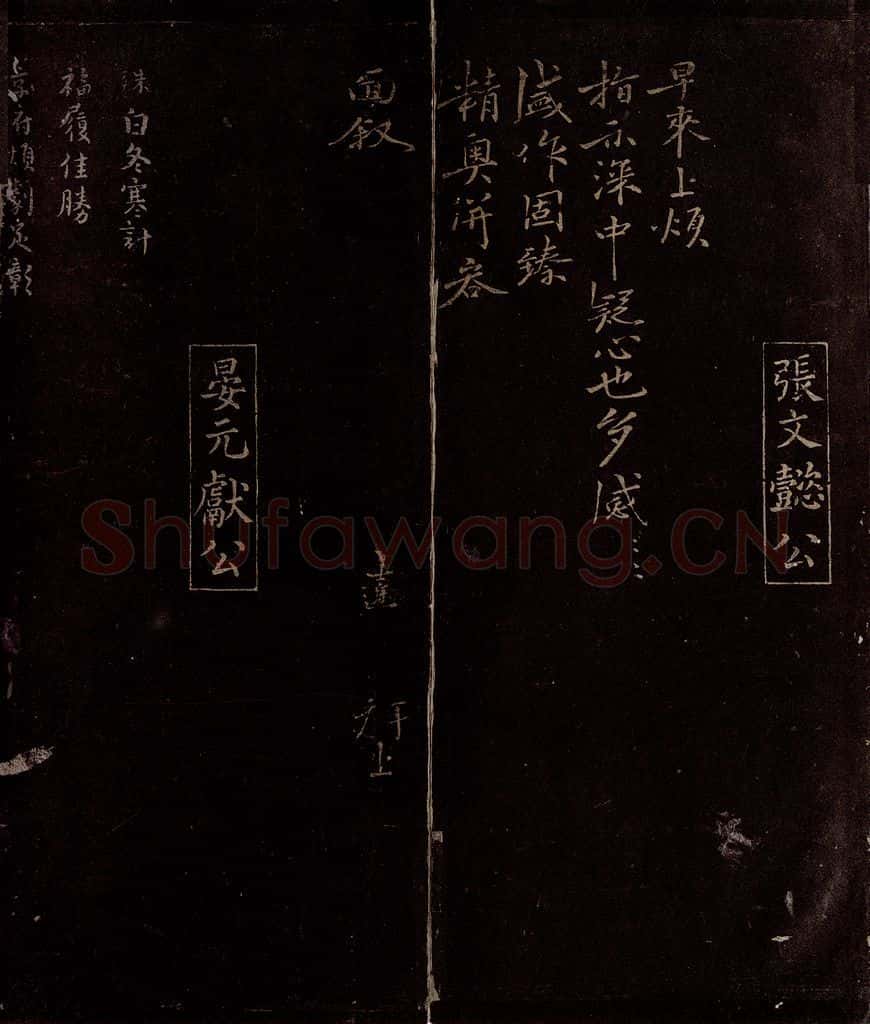 張文懿公
早來上煩
指示深中疑心也多感
盛作固臻
精奧併容
面叙
士遜
拜上
晏元獻公
殊白冬寒計
福履佳勝
府煩劇定彰
Shufawang.CN